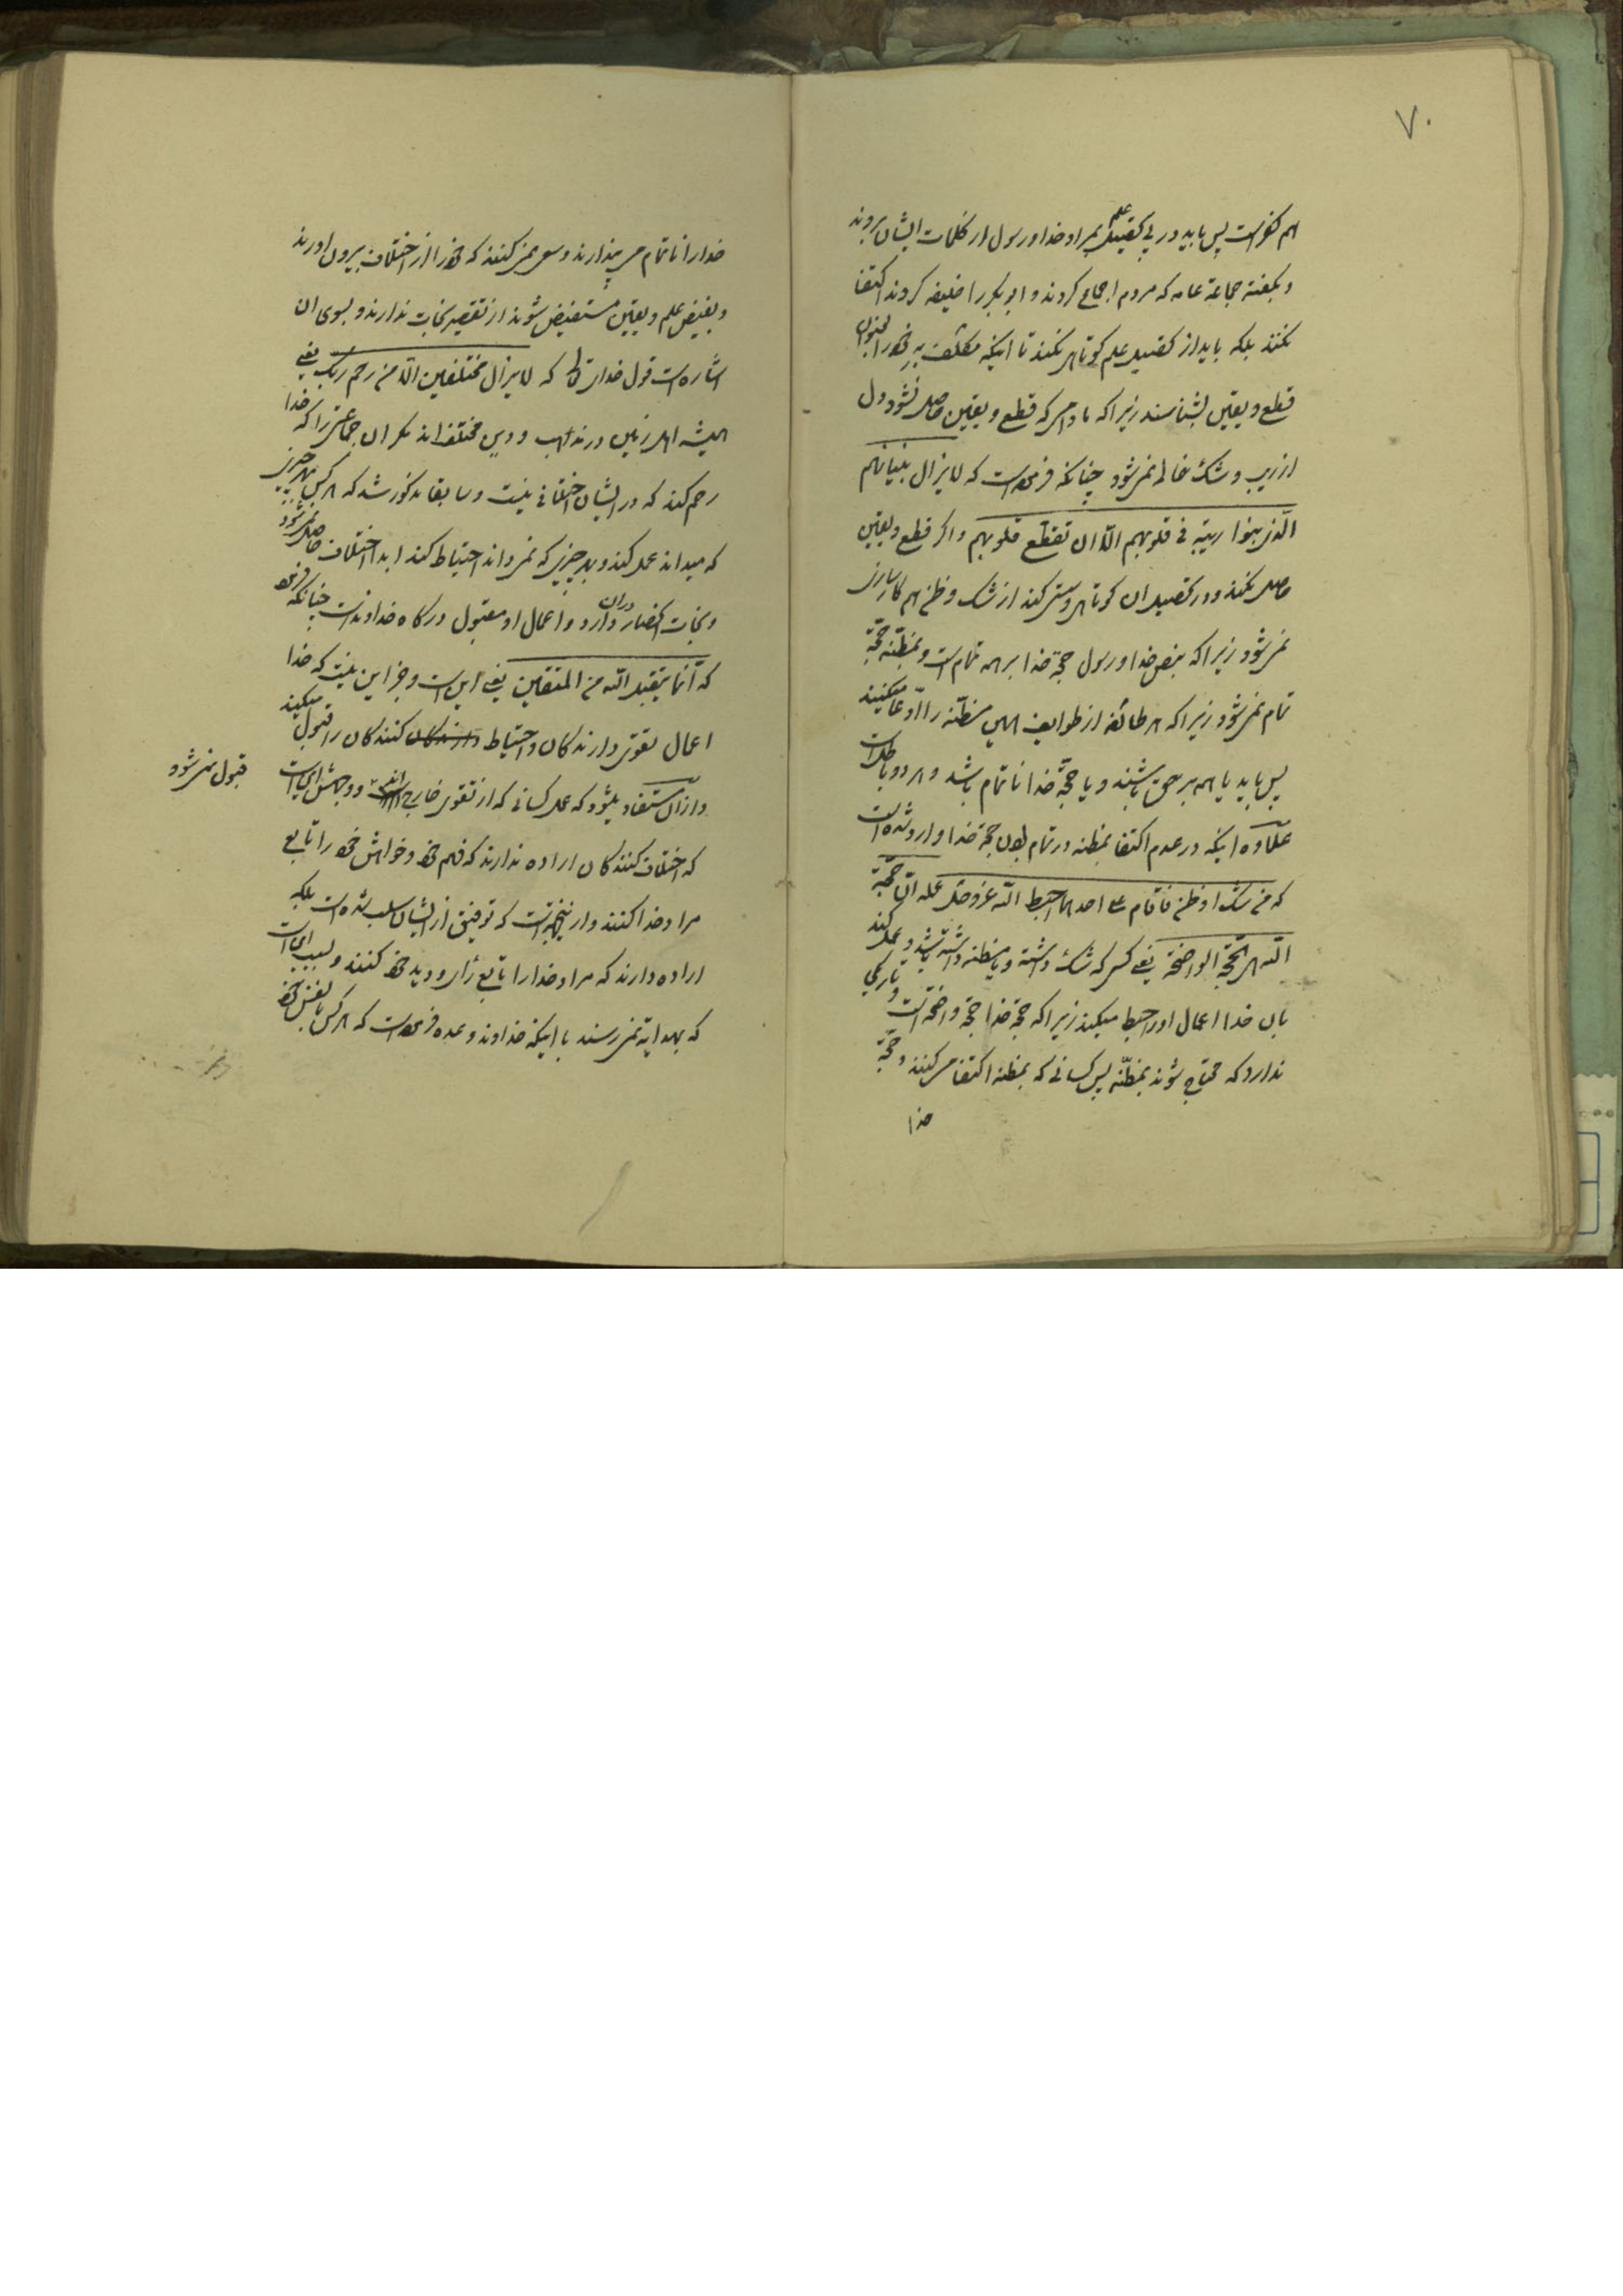 ۷۰
هم کفر است پس باید در پی تحصیل علم بمراد خدا و رسول از کلمات ایشان بروند
و بگفته جماعة عامه که مردم اجماع کردند و ابو بکر را خلیفه کردند اکتفا
نکنند بلکه باید از تحصیل علم کوتاهی نکنند تا اینکه مکلف به خود را بعنوان
قطع و یقین بشناسند زیرا که مادامی که قطع و یقین حاصل نشود دل
از ریب و شک خالی نمی شود چنانکه فرموده است که لا یزال بنیانهم
الذی بنوا ریبة فی قلوبهم الا ان تقطع قلوبهم و اگر قطع و یقین
حاصل نکنند و در تحصیل ان کوتاهی و سستی کند از شک و ظن هم کار سازی
نمی شود زیرا که بنص خدا و رسول حجة خدا بر همه تمام است و بمظنّه حجّة
تمام نمی شود زیرا که هر طائفه از طوایف الهی مظنّه را ادّعا میکنند
پس باید یا همه بر حق باشند و یا حجّة خدا ناتمام باشد و هر دو باطل است
علاوه اینکه در عدم اکتفا بمظنه و در تمام بودن حجة خدا وارد شده است
که من شک او ظن فاقام علی احدهما احبط الله عز و جل عمله ان حجّة
الله هی الحجّة الواضحة یعنی کسی که شک داشته و یا مظنه داشته باشد و عمل کند
بان خدا اعمال او را حبط میکند زیرا که حجة خدا حجة واضحه است و تاریکی
ندارد که محتاج شوند بمظنّه پس کسانی که بمظنه اکتفا می کنند و حجّة
خدا
خدا را ناتمام می پندارند و سعی نمی کنند که خود را از اختلاف بیرون اورند
و بفیض علم و یقین مستفیض شوند از تقصیر نجات ندارند و بسوی ان
اشاره است قول خدای تعالی که لا یزال مختلفین الا من رحم ربک یعنی
همیشه اهل زمین در مذهب و دین مختلف اند مگر ان جماعتی را که خدا
رحم کند که در ایشان اختلافی نیست و سابقا مذکور شد که هر کس بهر چیزی
که میداند عمل کند و بهر چیزی که نمی داند احتیاط کند ابدا اختلاف حاصل نمی شود
و نجات انحصار در ان دارد و اعمال او مقبول درگاه خداوند است چنانکه فرموده
که انّما یتقبل الله من المتقین یعنی این است و جز این نیست که خدا
اعمال تقوی دارندگان و احتیاط کنندگان را قبول میکند
و از ان مستفاد میشود که عمل کسانی که از تقوی خارج اند قبول نمی شود و وجهش این است
که اختلاف کنندگان اراده ندارند که فهم خود و خواهش خود را تابع
مراد خدا کنند و از این جهت است که توفیق از ایشان سلب شده است بلکه
اراده دارند که مراد خدا را تابع رأی و دید خود کنند و بسبب این است
که بهدایة نمی رسند با اینکه خداوند وعده فرموده است که هر کس با نفس خود